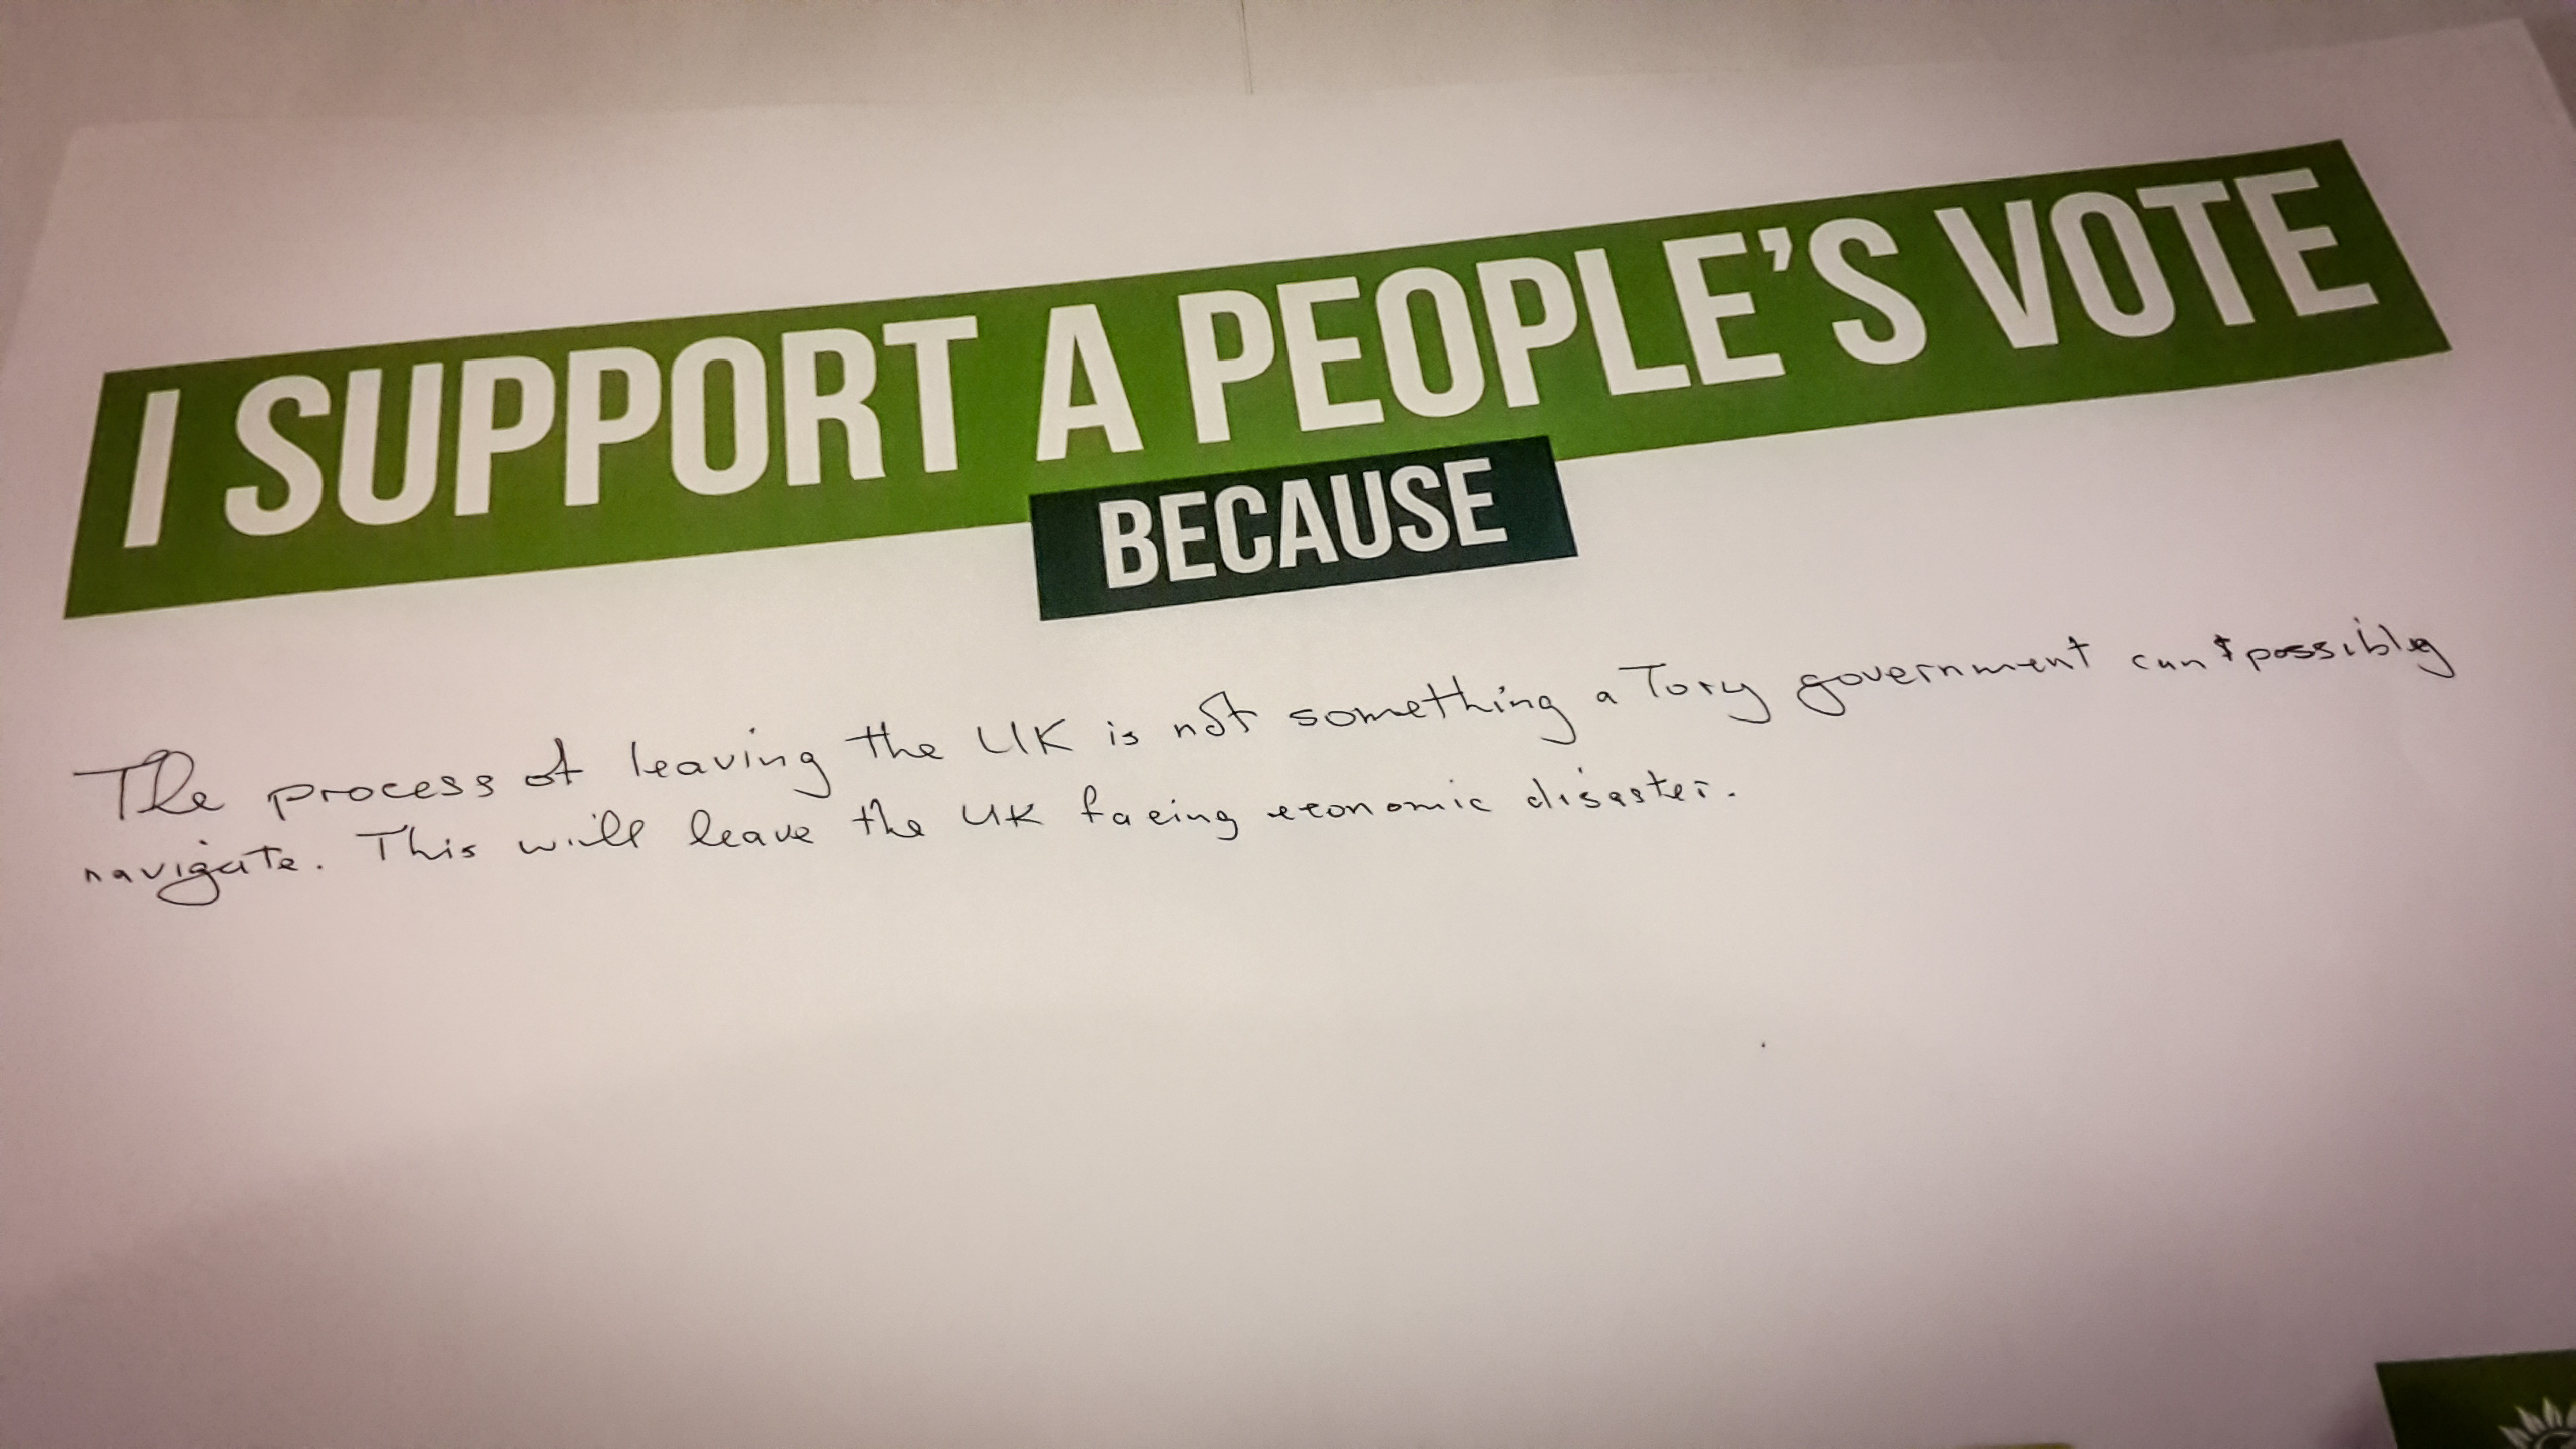 I SUPPORT A PEOPLE'S VOTE
BECAUSE
The process of leaving the UK is not something a Tory government can't possibly
navigate. This will leave the UK facing economic disaster.